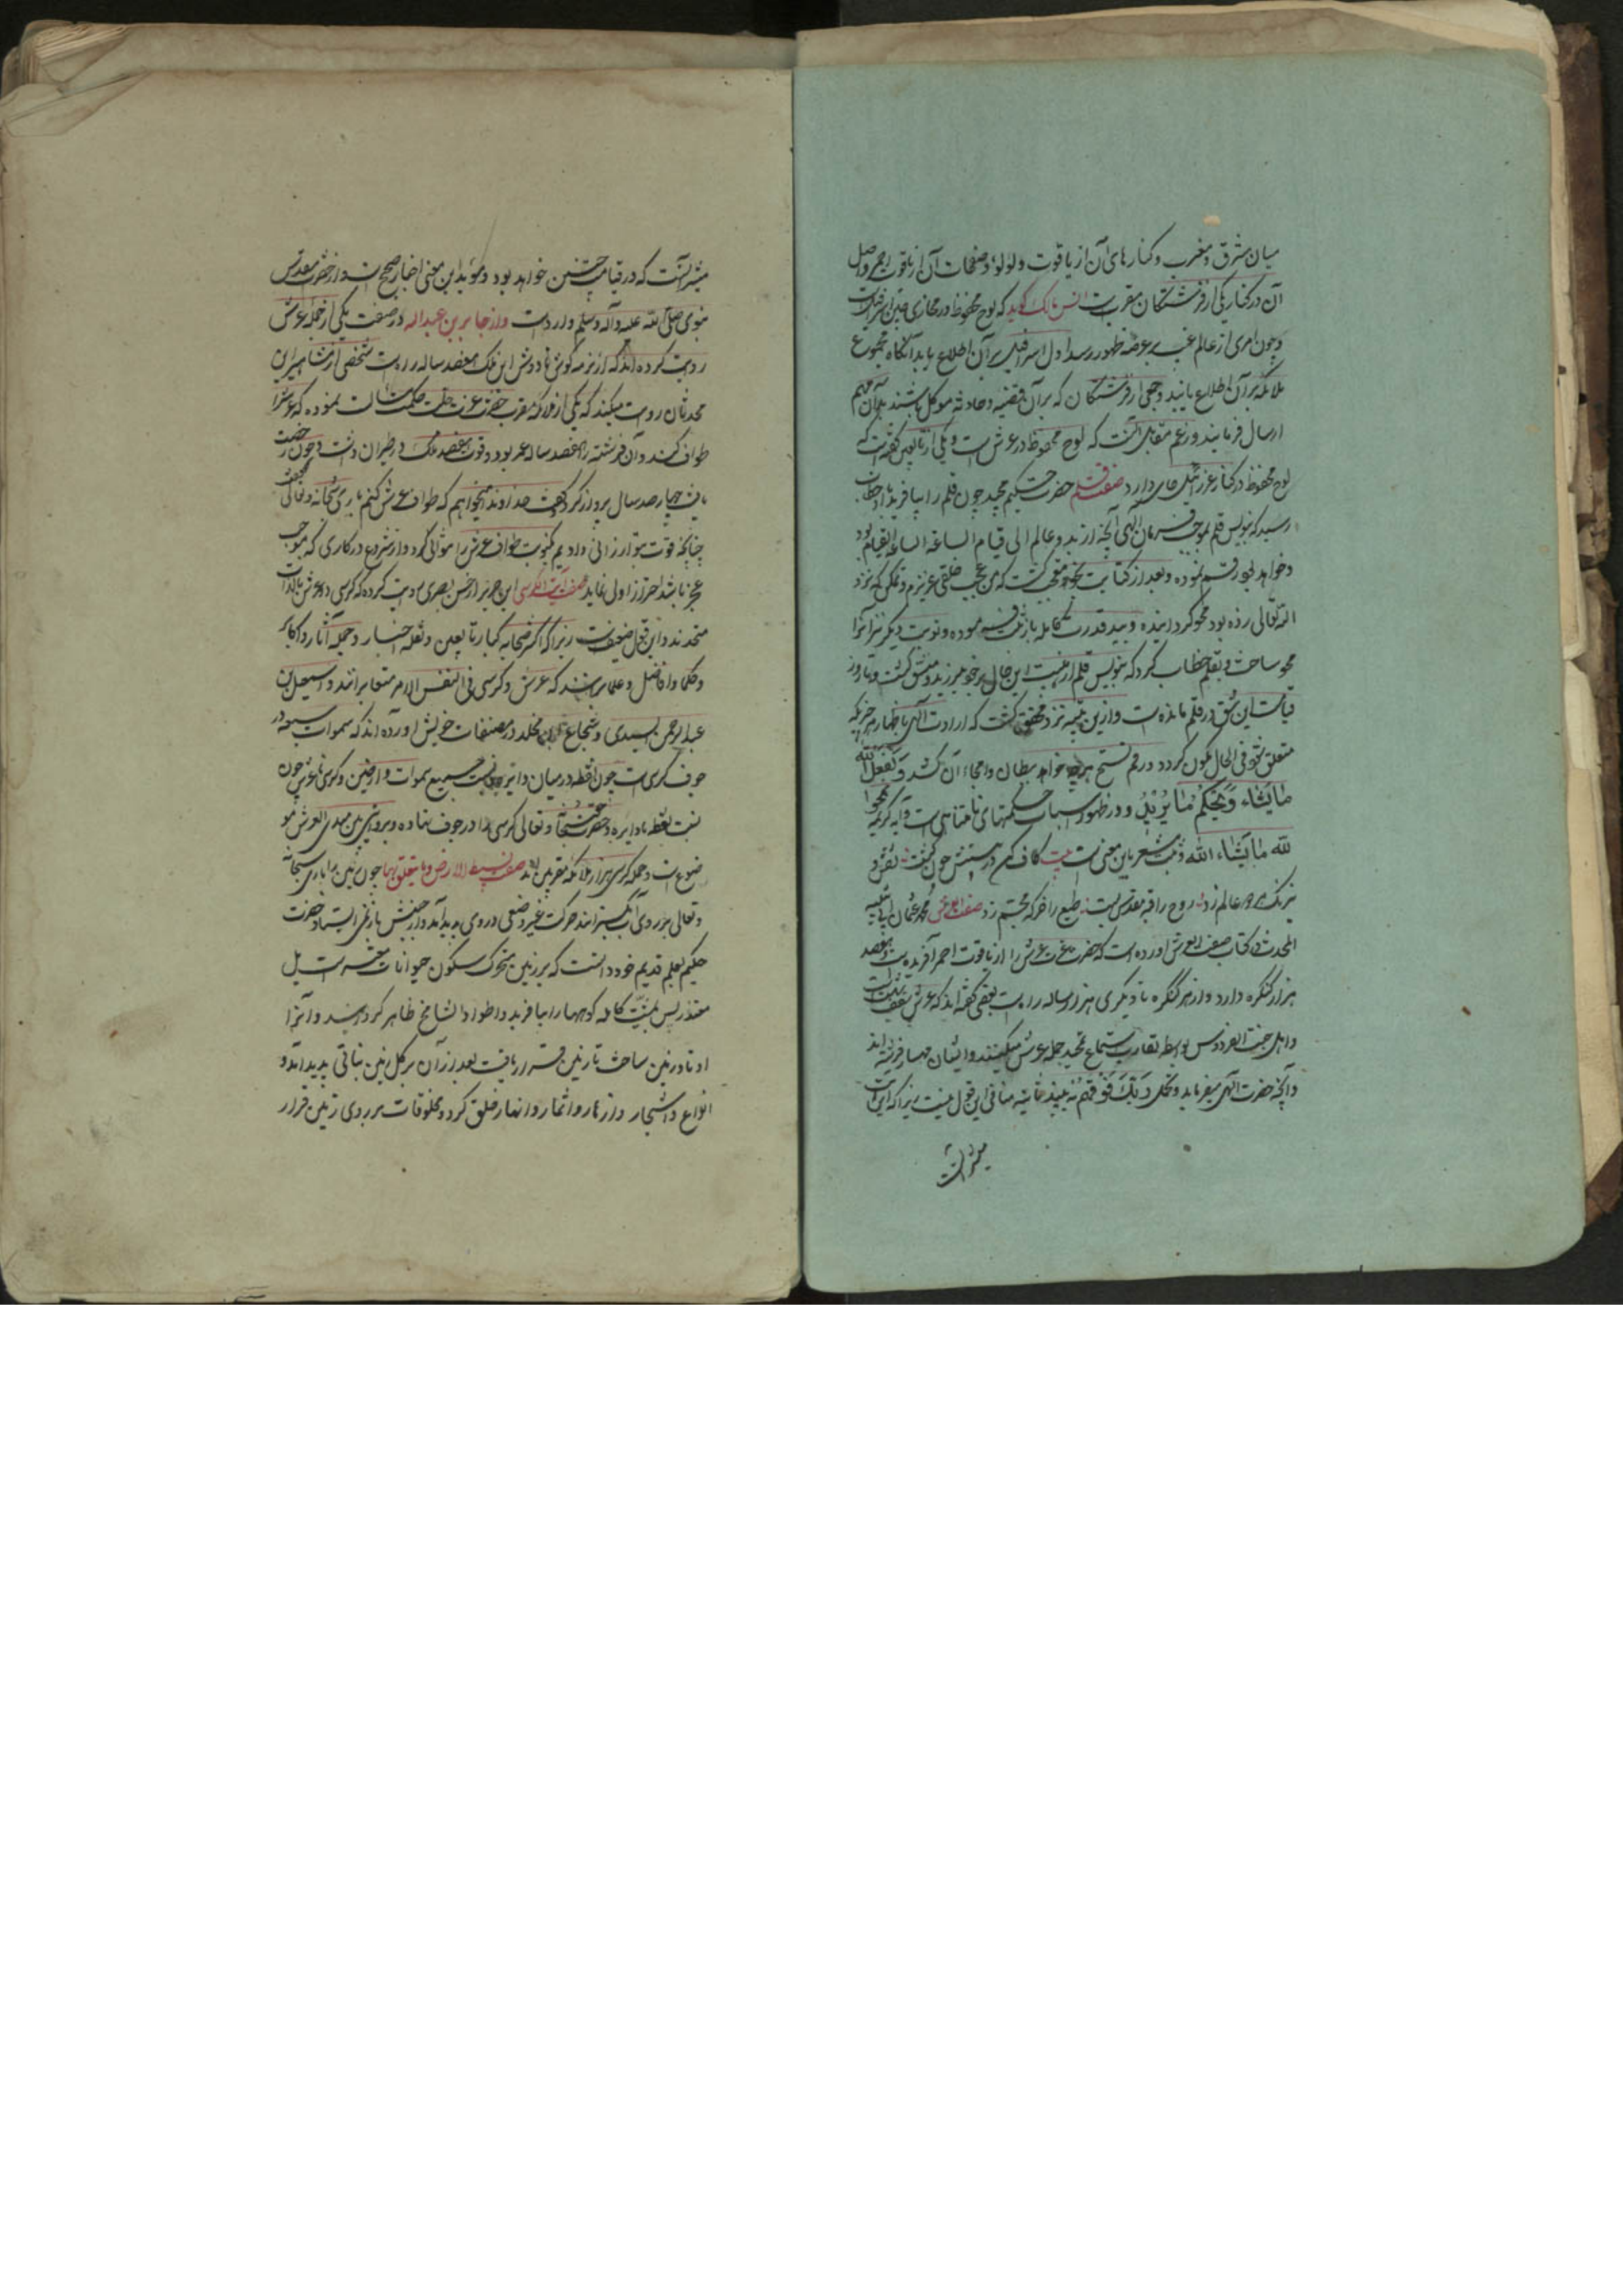 میان مشرق و مغرب و کنارهای آن از یاقوت و لولو و صفحات آن از یاقوت احمر و اصل
آن در کنار یکی از فرشتگان مقرب است انس مالک گوید که لوح محفوظ در محاذی جبین اسرافیلست
و چون امری از عالم غیب بر عرصه ظهور رسد اول اسرافیل بر آن اطلاع یابد آنگاه مجموع
ملائکه بر آن اطلاع یابند و جمعی از فرشتگان که بر آن قضیه و حادثه موکل باشند بدان مهم
ارسال فرمایند و زعم مقاتل آنست که لوح محفوظ در عرش است و یکی از تابعین گفته است که
لوح محفوظ در کنار عزرائیل جای دارد صفت قلم حضرت حکیم مجید چون قلم را بیافرید خطاب
رسید که بنویس قلم بموجب فرمان الهی آنچه از بدو عالم الی قیام الساعة الساعة القیام بود
و خواهد بود رقم نموده و بعد از کتابت بخود معجب گشت که من عجب خلقی عزیزم و تمکنی که نزد
الله تعالی زده بود محو گردانیده و بید قدرت کامله باز ثبت فرموده و نوبت دیگر نیز آنرا
محو ساخت و بقلم خطاب کرد که بنویس قلم از هیبت این حال بر خود بلرزید و منشق گشت و تا روز
قیامت این شق در قلم مانده است و ازین نزد محقق گشت که ارادت الهی باظهار هر چیز که
متعلق شود فی الحال یکون گردد و رقم نسخ بر هر چه خواهد بطلان و امحاء آن کشد و یفعل الله
ما یشاء و یحکم ما یرید و در ظهور اسباب حکمتهای نامتناهی است و آیه کریمه یمحوا
الله ما یشاء الله و یثبت مشعر باین معنی است بیت کاف کن در مشیتش چون گشت نقش
نیرنگ هر دو عالم زد روح را قبه مقدس بست طبع را خرگه مجسم زد صفت العرش محمد عثمان ابی شیبه
المحدث در کتاب صفت العرش آورده است که حضرت عزت عرش را از یاقوت احمر آفریده است و هفصد
هزار کنگره دارد و از هر کنگره تا دیگری هزار ساله راه است بعضی گفته اند که عرش سقف بهشت است
و اهل جنت الفردوس بواسطه تقارب استماع تمجید حمله عرش میکنند و ایشان چهار فرشته اند
و آنچه حضرت الهی میفرماید و یحمل عرش ربک فوقهم یومئذ ثمانیة منافی این قول نیست زیرا که این
میشر آنست
میشر آنست که در قیامت چنین خواهد بود و موید این معنی اخبار صحیح است و از حضرت مقدس
نبوی صلی الله علیه و آله و سلم وارد است و از جابر بن عبدالله در صفت یکی از حمله عرش
روایت کرده اند که از نرمه گوش تا دوش این ملک هفصد ساله راه است شخصی از مشاهیر این
محدثان روایت میکند که یکی از ملائکه مقرب حضرت عزت جلت حکمته مسالت نموده که عرش را
طواف کند و آن فرشته را هفصد ساله عمر بود و قوت هفصد ملک در طیران داشت و چون رخصت
یافت چهار صد سال پرواز کرد گفت خداوندا میخواهم که طواف عرش کنم باری سبحانه و تعالی گفت
چنانچه قوت بتو ارزانی دادیم کنون طواف عرش را متوالی کرد و از شروع در کاری که موجب
عجز باشد احتراز اولی نماید صفت الکرسی ابن جریر از حسن بصری روایت کرده که کرسی و عرش بالذات
متحدند و این قول ضعیفست زیرا که اکثر صحابه کبار و تابعین و نقله اخبار و حمله آثار و اکابر
و حکما و افاضل و علما برانند که عرش و کرسی فی النفس الامر متغایرانند و اسمعیل بن
عبدالرحمن السدی و شجاع بن مخلد در مصنفات خویش آورده اند که سموات سبعه در
جوف کرسی است چون نقطه در میان دایره و نسبت جمیع سموات و ارضین و کرسی با عرش چون
نسبت نقطه با دایره و حضرت حق سبحانه و تعالی کرسی را در جوف نهاده و بروایتی بین یدی العرش مو
ضوع است و حمله کرسی هزار ملائکه مقربین اند صفت بسط الارض و ما یتعلق بها چون زمین را باری سبحانه
و تعالی بر روی آب بگسترانید حرکت عنیف و صعبی در وی پدید آمد و از جنبش باز نمی ایستاد حضرت
حکیم بعلم قدیم خود دانست که بر زمین متحرک سکون حیوانات متعسر است بل
متعذر پس بمشیت کامله کوهها را بیافرید و اطواد الشامخ ظاهر گردانید و آنرا
اوتاد زمین ساخت تا زمین قرار یافت بعد از آن بر کل زمین نباتی پدید آمد و
انواع اشجار و ازهار و اثمار و انهار خلق کرد و مخلوقات بر روی زمین قرار